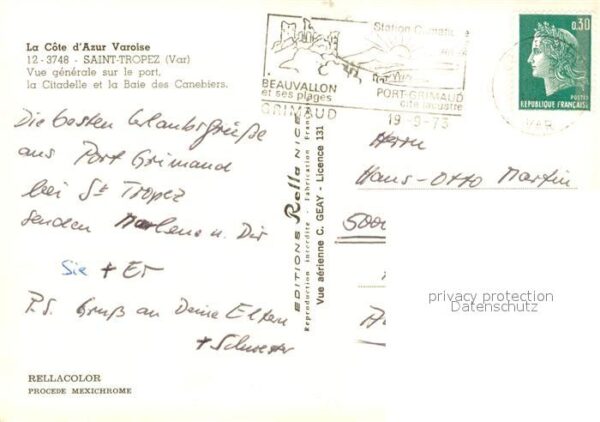 La Côte d'Azur Varoise
12 - 3748 - SAINT-TROPEZ (Var)
Vue générale sur le port,
la Citadelle et la Baie des Canebiers.
Station Climatique
BEAUVALLON
et ses plages
PORT-GRIMAUD
cité lacustre
GRIMAUD
19-9-73
VAR
0,30
POSTES
REPUBLIQUE FRANÇAISE
Die besten Urlaubsgrüße
aus Port Grimaud
bei St Tropez
senden Marlene u. Dir
Sie + Er
P.S. Gruß an Deine Eltern
+ Schwester
EDITIONS Rella NICE
Reproduction interdite - fabrication Française
Vue aérienne C. GEAY - Licence 131
Herrn
Hans-Otto Martin
5000
privacy protection
Datenschutz
RELLACOLOR
PROCEDE MEXICHROME